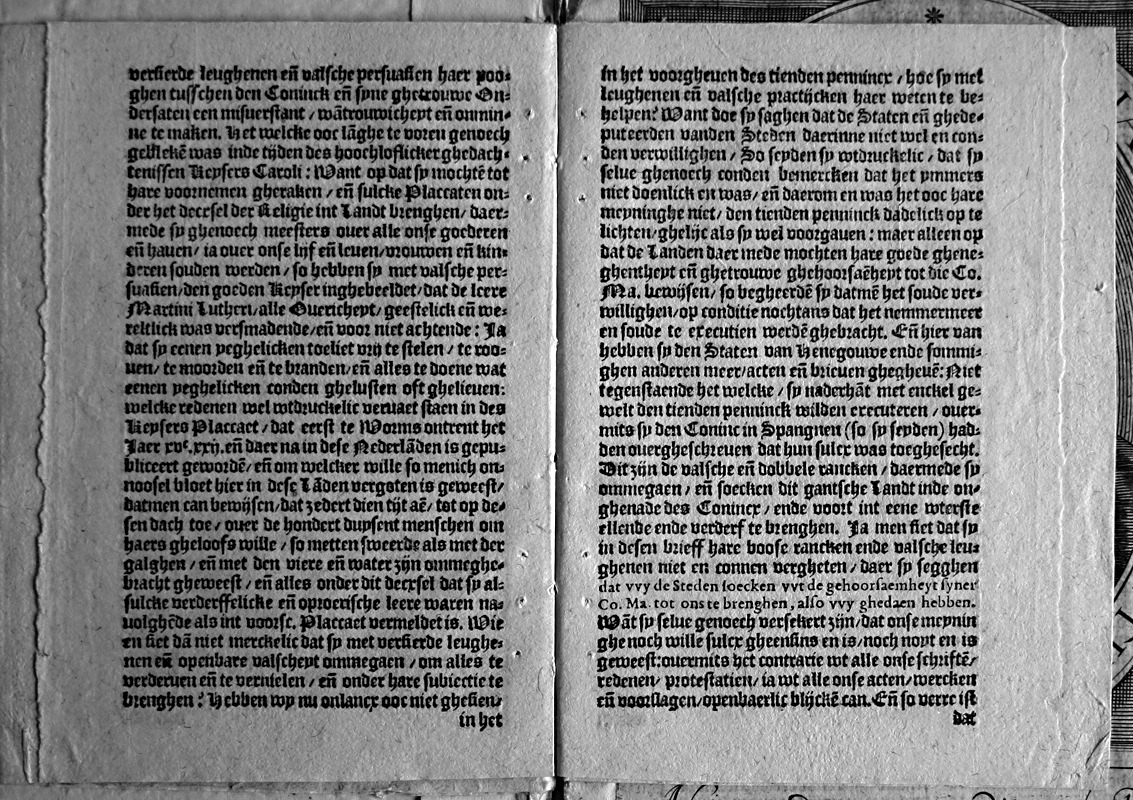 versierde leughenen eñ valsche persuasien haer poo⸗
ghen tusschen den Coninck eñ syne ghetrouwe On⸗
dersaten een misuerstant / wãtrouwicheyt eñ onmin⸗
ne te maken. Het welcke ooc lãghe te voren genoech
geblekē was inde tijden des hoochloflicker ghedach⸗
tenissen Keysers Caroli : Want op dat sy mochtē tot
hare voornemen gheraken / eñ sulcke Placcaten on⸗
der het decxsel der Religie int Landt brenghen / daer⸗
mede sy ghenoech meesters ouer alle onse goederen
eñ hauen / ia ouer onse lijf eñ leuen / vrouwen eñ kin⸗
deren souden werden / so hebben sy met valsche per⸗
suasien / den goeden Keyser inghebeeldet / dat de leere
Martini Lutheri / alle Ouericheyt / geestelick eñ we⸗
reltlick was versmadende / eñ voor niet achtende : Ja
dat sy eenen yeghelicken toeliet vrij te stelen / te roo⸗
uen / te moorden eñ te branden / eñ alles te doene wat
eenen yeghelicken conden ghelusten oft ghelieuen:
welcke redenen wel wtdruckelic veruaet staen in des
Keysers Placcaet / dat eerst te Worms ontrent het
Jaer xvᶜ.xxij. eñ daer na in dese Nederlãden is gepu⸗
bliceert gewordē / eñ om welcker wille so menich on⸗
noosel bloet hier in dese Lãden vergoten is geweest /
datmen can bewijsen / dat zedert dien tijt aē / tot op de⸗
sen dach toe / ouer de hondert duysent menschen om
haers gheloofs wille / so metten sweerde als met der
galghen / eñ met den viere eñ water zijn ommeghe⸗
bracht gheweest / eñ alles onder dit decxsel dat sy al⸗
sulcke verderffelicke eñ oproerische leere waren na⸗
uolghēde als int voorsc. Placcaet vermeldet is. Wie
en siet dã niet merckelic dat sy met versierde leughe⸗
nen eñ openbare valscheyt ommegaen / om alles te
verderuen eñ te vernielen / eñ onder hare subiectie te
brenghen ? Hebben wy nu onlancx ooc niet ghesien /
in het
in het voorgheuen des tienden pennincx / hoe sy met
leughenen eñ valsche practijcken haer weten te be⸗
helpen? Want doe sy saghen dat de Staten eñ ghede⸗
puteerden vanden Steden daerinne niet wel en con⸗
den verwillighen / So seyden sy wtdruckelic / dat sy
selue ghenoech conden bemercken dat het ymmers
niet doenlick en was / eñ daerom en was het ooc hare
meyninghe niet / den tienden penninck dadelick op te
lichten / ghelijc als sy wel voorgauen : maer alleen op
dat de Landen daer mede mochten hare goede ghene⸗
ghentheyt eñ ghetrouwe ghehoorsaēheyt tot die Co.
Ma. bewijsen / so begheerdē sy datmē het soude ver⸗
willighen / op conditie nochtans dat het nemmermeer
en soude te executien werdē ghebracht. Eñ hier van
hebben sy den Staten van Henegouwe ende sommi⸗
ghen anderen meer / acten eñ brieuen ghegheuē: Niet
tegenstaende het welcke / sy naderhãt met enckel ge⸗
welt den tienden penninck wilden executeren / ouer⸗
mits sy den Coninc in Spangnen (so sy seyden) had⸗
den ouergheschreuen dat hun sulcx was toeghesecht.
Dit zijn de valsche eñ dobbele rancken / daermede sy
ommegaen / eñ soecken dit gantsche Landt inde on⸗
ghenade des Conincx / ende voort int eene wterste
ellende ende verderf te brenghen. Ja men siet dat sy
in desen brieff hare boose rancken ende valsche leu⸗
ghenen niet en connen vergheten / daer sy segghen
dat vvy de Steden soecken vvt de gehoorsaemheyt syner
Co. Ma. tot ons te brenghen, also vvy ghedaen hebben.
Wãt sy selue genoech versekert zijn / dat onse meynin
ghe noch wille sulcx gheensins en is / noch noyt en is
geweest: ouermits het contrarie wt alle onse schriftē /
redenen / protestatien / ia wt alle onse acten / wercken
eñ voorslagen / openbaerlic blijckē can. Eñ so verre ist
dat